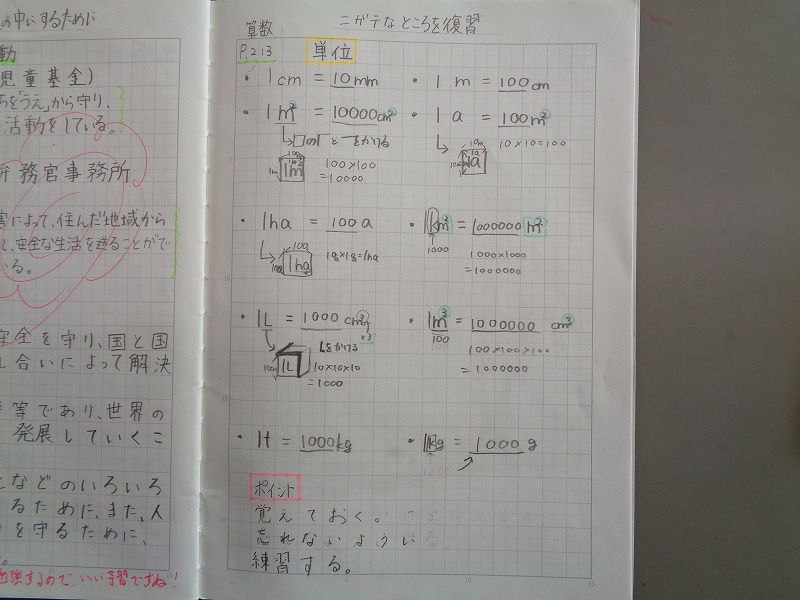 の中にするために
動
児童基金)
「うえ」から守り、
活動をしている。
弁務官事務所
害によって、住んだ地域から
、安全な生活を送ることがで
いる。
安全を守り、国と国
し合いによって解決
等であり、世界の
発展していくこ
などのいろいろ
るために、また、人
を守るために、
いい予習ですね!
算数
ニガテなところを復習
P.213 単位
・1cm = 10mm
・1m = 100cm
・1m² = 10000cm²
・1a = 100m²
100×100
=10000
10×10=100
10m
1a
・1ha = 100a
・1km² = 1000000m²
1ha
1000
1000×1000
=1000000
・1L = 1000cm³
・1m³ = 1000000cm³
100
×3
1L
10×10×10
=1000
100×100×100
=1000000
・1t = 1000kg
・1kg = 1000g
ポイント
覚えておく。
忘れないように
練習する。